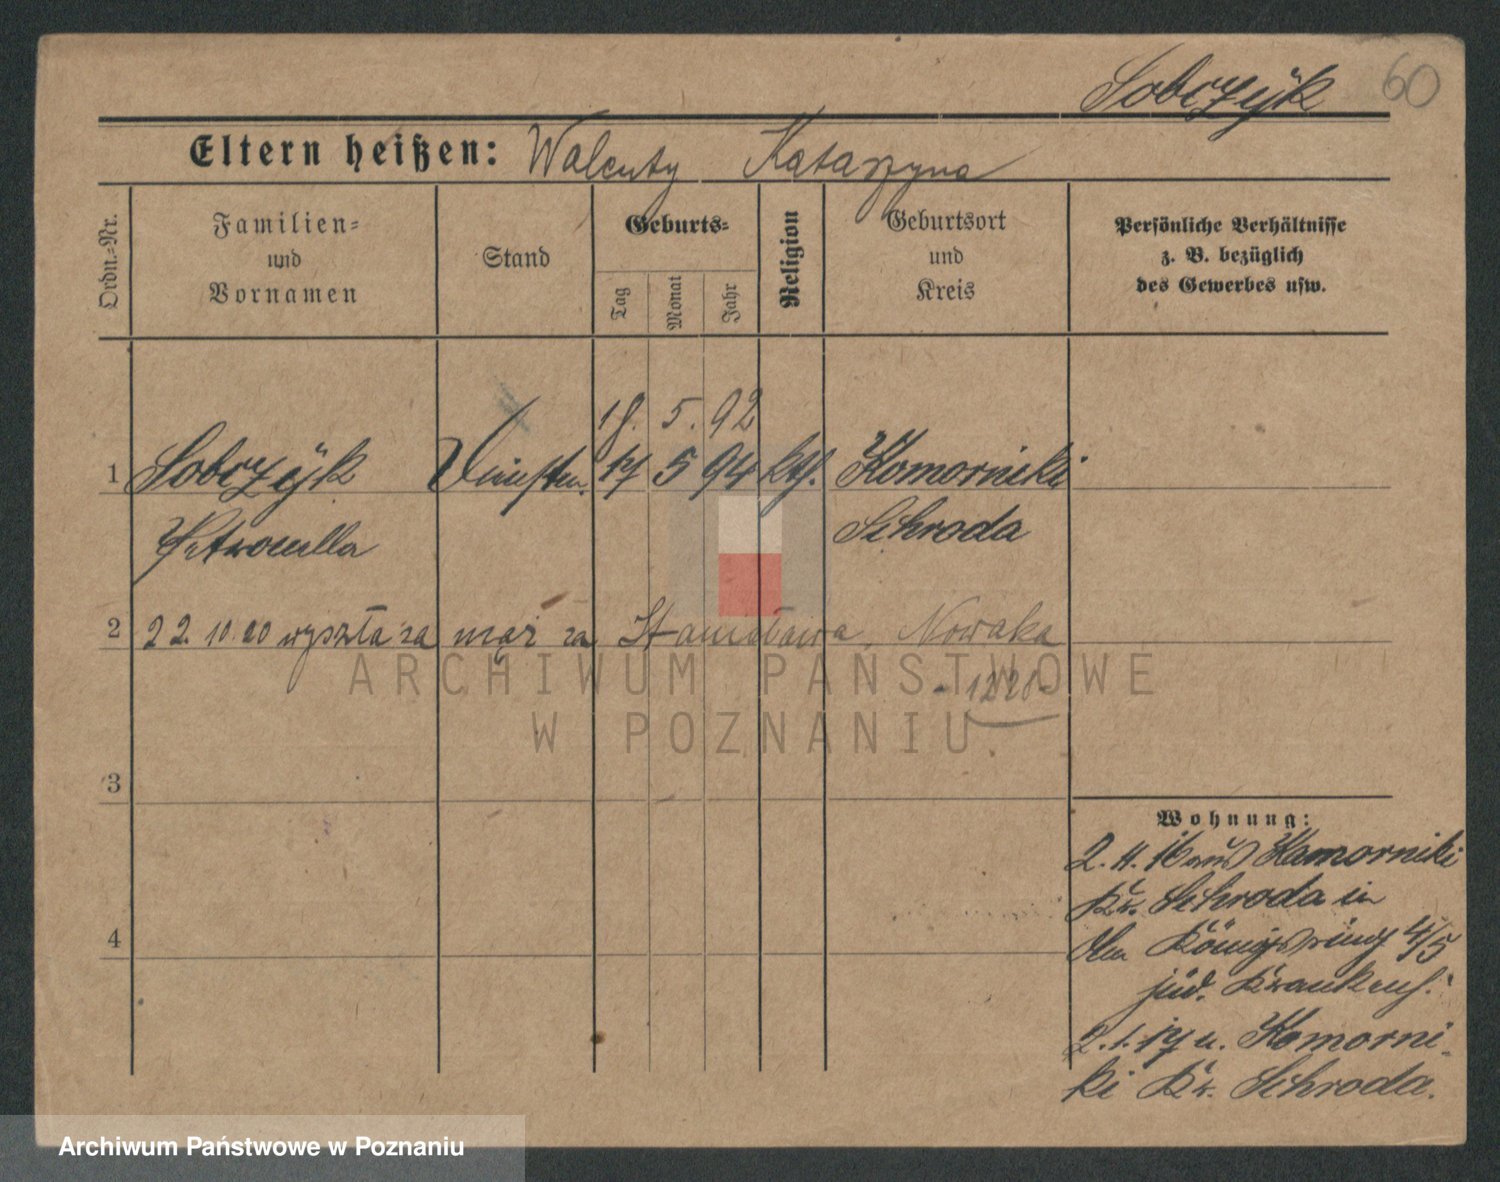 Sobczÿk 60
Eltern heißen: Walenty Katarzyna
Ordn.=Nr.
Familien=
und
Vornamen
Stand
Geburts=
Tag
Monat
Jahr
Religion
Geburtsort
und
Kreis
Persönliche Verhältnisse
z. B. bezüglich
des Gewerbes usw.
18. 5. 92
1 Sobczÿk 17 5 94 kth. Komorniki
Petronella Schroda
2 22. 10. 20 wyszła za mąż za Stanisława Nowaka
ARCHIWUM PAŃSTWOWE
W POZNANIU
3
4
Wohnung:
2. 11. 16 aus Komorniki
Kr. Schroda in
Königsring 4/5
jüd. Krankenh.
2. 1. 17 n. Komorni-
ki Kr. Schroda.
Archiwum Państwowe w Poznaniu